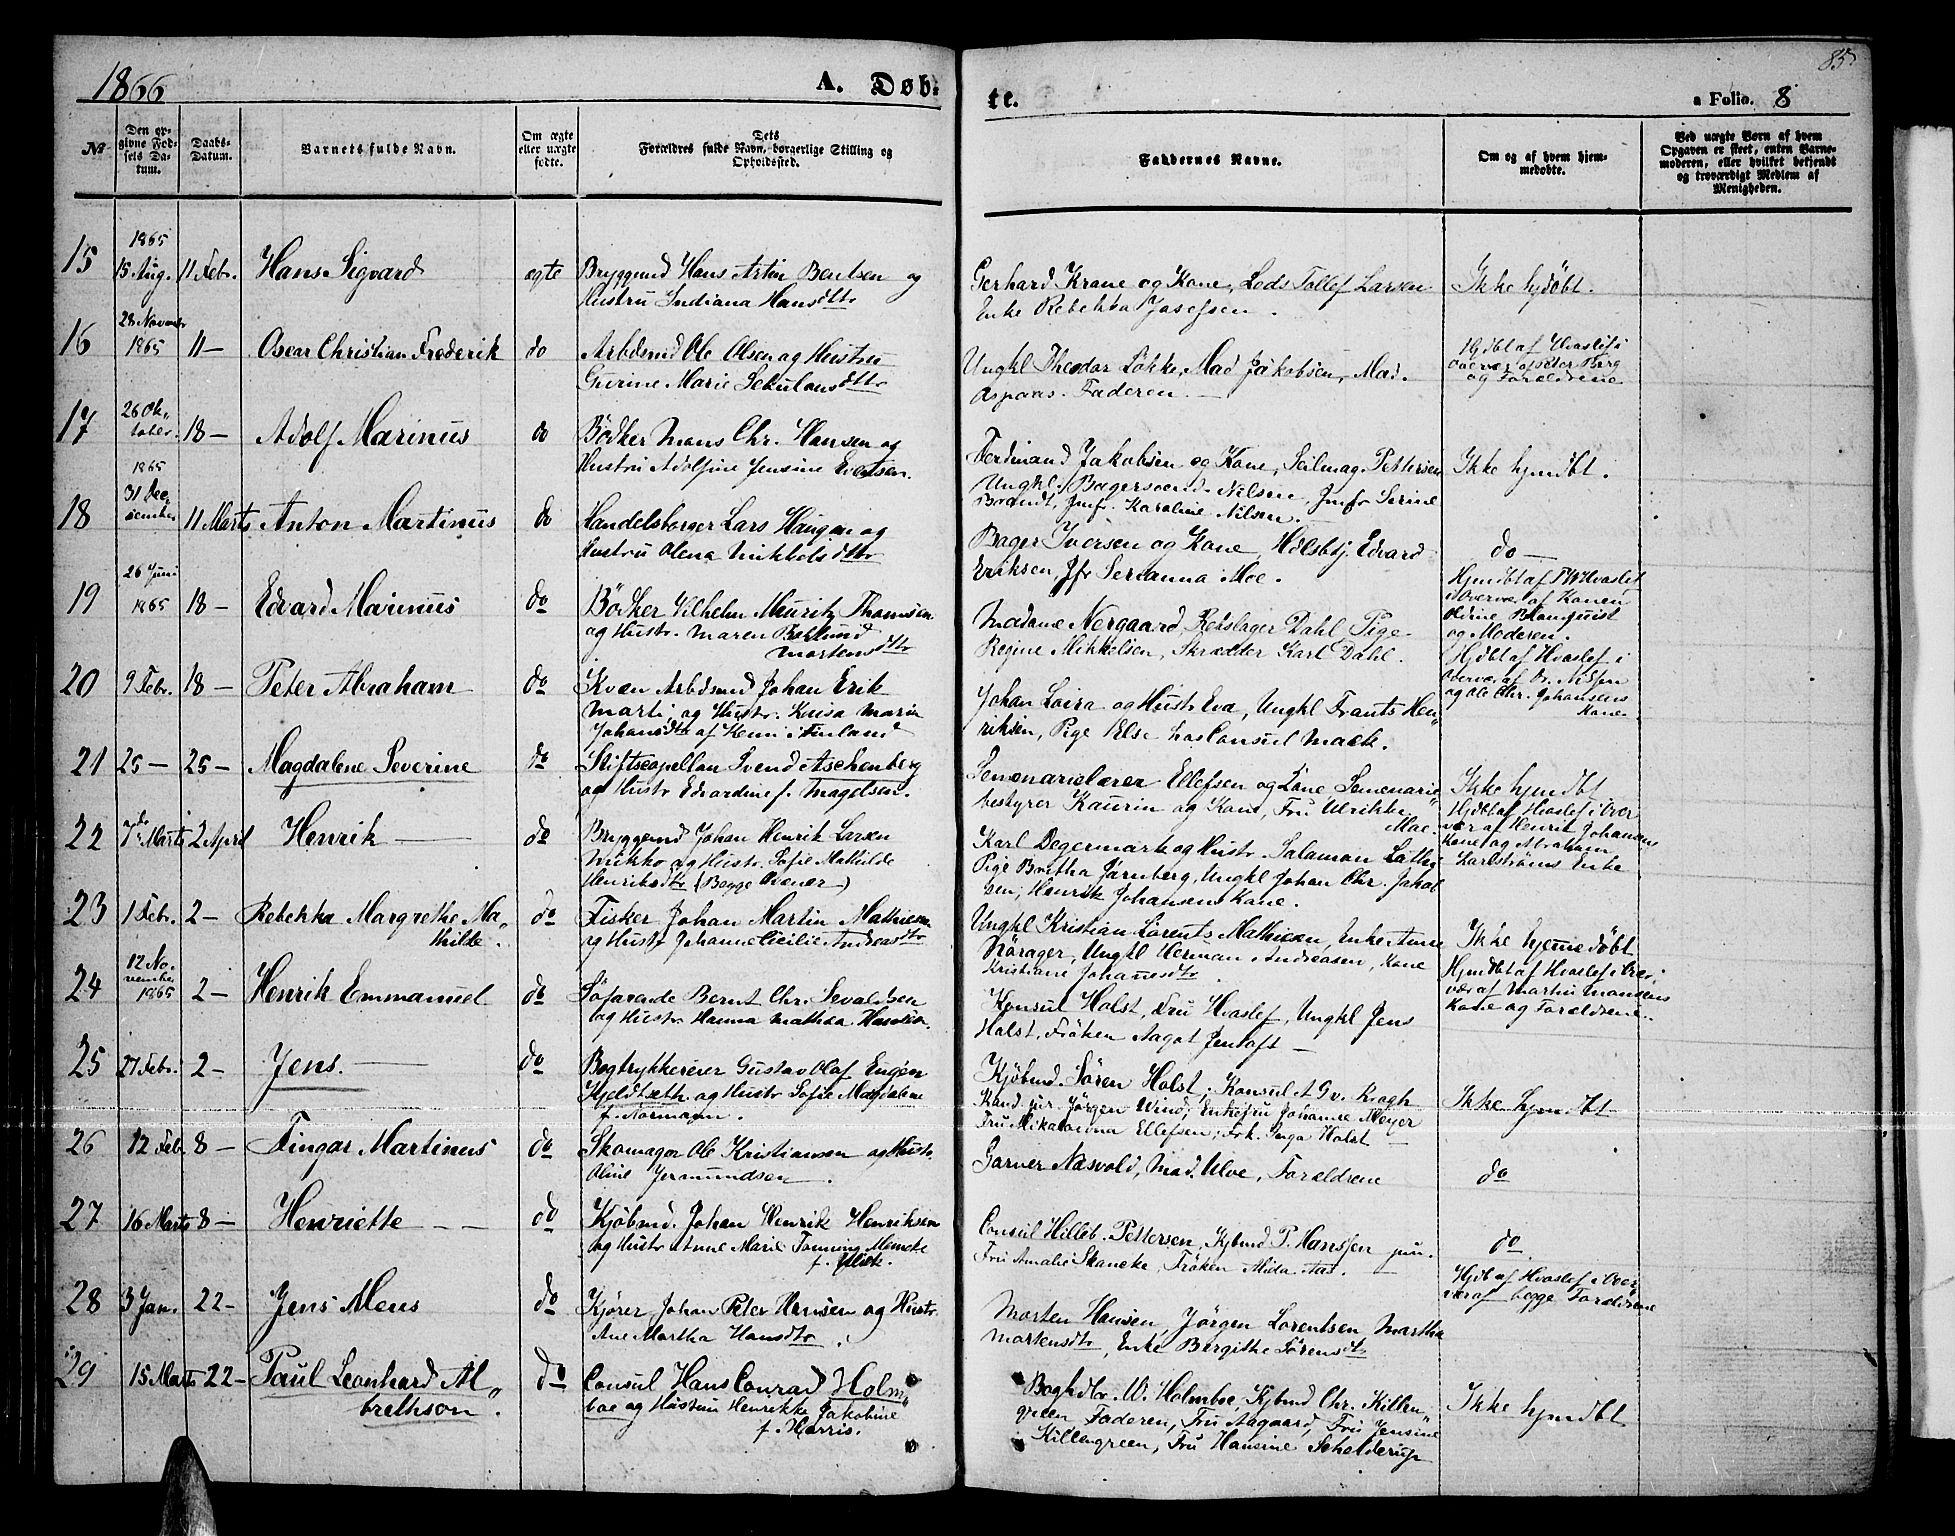 1866
A. Døb-
te.
85
a Folio. 8
No
Den opgivne Fødsels Datum.
Daabs-Datum.
Barnets fulde Navn.
Om ægte eller uægte fødte.
Forældres fulde Navn, borgerlige Stilling og Opholdssted.
Faddernes Navne.
Om og af hvem hjemmedøbte.
Ved uægte Børn af hvem Opgaven er skeet, enten Barnemoderen, eller hvilket bekjendt og troværdigt Medlem af Menigheden.
15
1865
15 Aug.
11 Febr.
Hans Sigvard
ægte
Bryggemd Hans Artin Bentsen og
Hustru Indiana Hansdtr
Gerhard Krane og Kone, Lods Tollef Larsen
Enke Rebekka Josefsen.
Ikke hjdöbt.
16
28 Novembr
1865
11 —
Oscar Christian Frederik
do
Arbdsmd Ole Olsen og Hustru
Marie
Ungkl Theodor Lökke, Mad Jakobsen, Mad.
Aspaas. Faderen. —
Hjdbt af Hvaslef i
Overvær af Peter Berg
og Forældrene
17
26 Oktober
1865
18 —
Adolf Marinus
do
Bödker Mons Chr. Hansen og
Hustru Adolfine Jensine Evertsen.
Ferdinand Jakobsen og Kone, Seilmag. Pettersen
Ungkl. Bagersvend Nilsen, Jmfr Serine
Brandt, Jmfr. Karoline Nilsen.
Ikke hjmdbt.
18
31 December
11 Marts
Anton Martinus
do
Handelsborger Lars Haugan og
Hustru Olena Mikkelsdtr
Bager Iversen og Kone, Hdlsbtj. Edvard
Eriksen, Jfr Serianna Moe.
do —
19
26 Juni
1865
18 —
Edvard Marinus
do
Bödker Vilhelm Mauritz Thomsen
og Hustr. Maren Berglund
Martensdtr
Madame Norgaard, Rebslager Dahl, Pige
Regine Mikkelsen, Skrædder Karl Dahl.
Hjmdbt af Hvaslef
i Overvær af Konen
Blomquist
og Moderen.
20
9 Febr.
18 —
Peter Abraham
do
Kvæn Arbdsmd Johan Erik
Marti, og Hustr. Kaisa Maria
Johansdtr af Kemi i Finland
Johan Loira og Hustr Eva, Ungkl Frants Hen„
riksen, Pige Else hos Consul Mack.
Hjdbt af Hvaslef i
Overvær af
og Ole Chr. Johansens
Kone
21
25 —
25 —
Magdalene Severine
do
Stiftscapellan Svend Aschenberg
og Hustr Edvardine f. Magelsen.
Semenarielærer Ellefsen og Kone Semenarie„
bestyrer Kaurin og Kone, Fru Ulrikke
Moe.
Ikke hjmdbt
22
7de Marts
2 April
Henrik —
do
Bryggemd Johan Henrik Larsen
Mikko og Hustr. Sofie Mathilde
Henriksdtr (Begge Kvæner)
Karl Degermark og Hustr. Salamon Lathi
Pige Britha Järnberg, Ungkl Johan Chr. Jakob„
sen, Henrik Johansens Kone.
Hjdbt af Hvaslef i Over„
vær af Henrik Johansens
Kone og Abraham
Karlströms Enke
23
1 Febr.
2 —
Rebekka Margrethe Ma„
thilde.
do
Fisker Johan Martin Mathiesen
og Hustr Johanne Cicilie Andreasdtr
Ungkl Kristian Lorents Mathiesen, Enke Anne
Nörager, Ungkl Herman Andreasen, Kone
Kristiane Johannesdtr.
Ikke hjemmedöbt
24
12 November
1865
2 —
Henrik Emmanuel
do
Söfarende Bernt Chr. Sevaldsen
og Hustr Hanna Mathea Hansen.
Konsul Holst, Fru Hvaslef, Ungkl Jens
Holst, Fröken Aagot Jentoft —
Hjmdbt af Hvaslef i Over„
vær af Martin Monsens
Kone og Forældrene.
25
27 Febr.
2 —
Jens. —
do
Bogtrykkereier Gustav Olaf Eugen
Kjeldseth og Hustr Sofie Magdalene
f. Normann.
Kjöbmd. Sören Holst, Konsul A Gv. Kragh
Kand. jur. Jörgen Wind, Enkefru Johanne Meyer
Fru Mikalovina Ellefsen, Frk. Inga Holst
Ikke hjmdbt
26
12 Feb.
8 —
Fingar Martinus
do
Skomager Ole Kristiansen og Hustr.
Oline Jermundsen.
Garver Næsvold, Mad. Ulve, Forældrene
do
27
16 Marts
8 —
Henriette — —
do
Kjöbmd. Johan Henrik Henriksen
og Hustr Anne Marie Tonning Meincke
f. Flick.
Consul Hilleb. Pettersen, Kjbmd P. Hanssen jun.
Fru Amalie Skancke, Fröken Mida Aas.
do
28
3 Jan.
22 —
Jens Mens
do
Kjører Johan Peter Hansen og Hustr.
Ane Martha Hansdtr.
Morten Hansen, Jörgen Lorentsen, Martha
Mortensdtr, Enke Bergithe Sörensdtr
Hjdb af Hvaslef i Over„
vær af begge Forældrene
29
15 Marts
22 —
Paul Leonhard Al„
brethson.
do
Consul Hans Conrad Holm„
boe og Hustru Henrikke Jakobine
f. Harris.
Boghdlr. W. Holmboe, Kjbmd Chr. Killen„
green, Faderen, Fru Aagaard, Fru Jensine
Killengreen, Fru Hansine Schelderup
Ikke hjmdbt